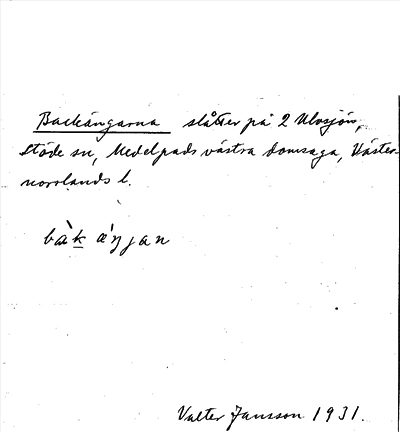 Backängarna slåtter på 2 Ulvsjön,
Stöde sn, Medelpads västra domsaga, Väster-
norrlands l.
bàk ä́ŋjan
Valter Jansson 1931.